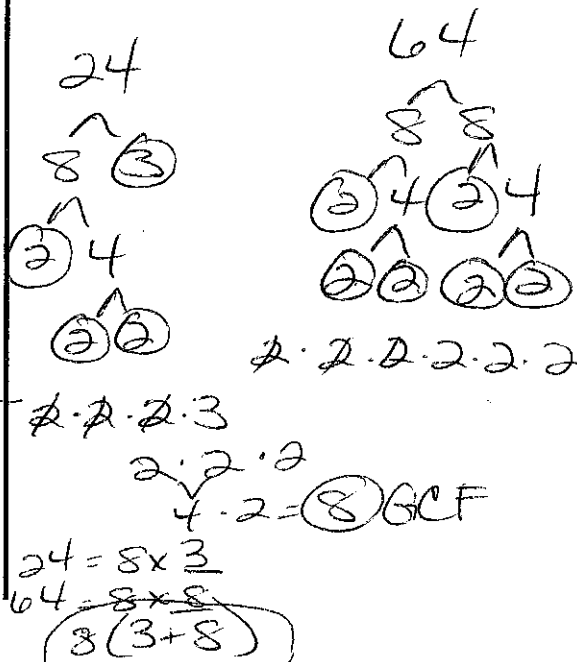 24
8 3
2 4
2 2
2·2·2·3
64
8 8
2 4 2 4
2 2 2 2
2·2·2·2·2·2
2·2·2
4·2=8 GCF
24=8x3
64=8x8
8(3+8)